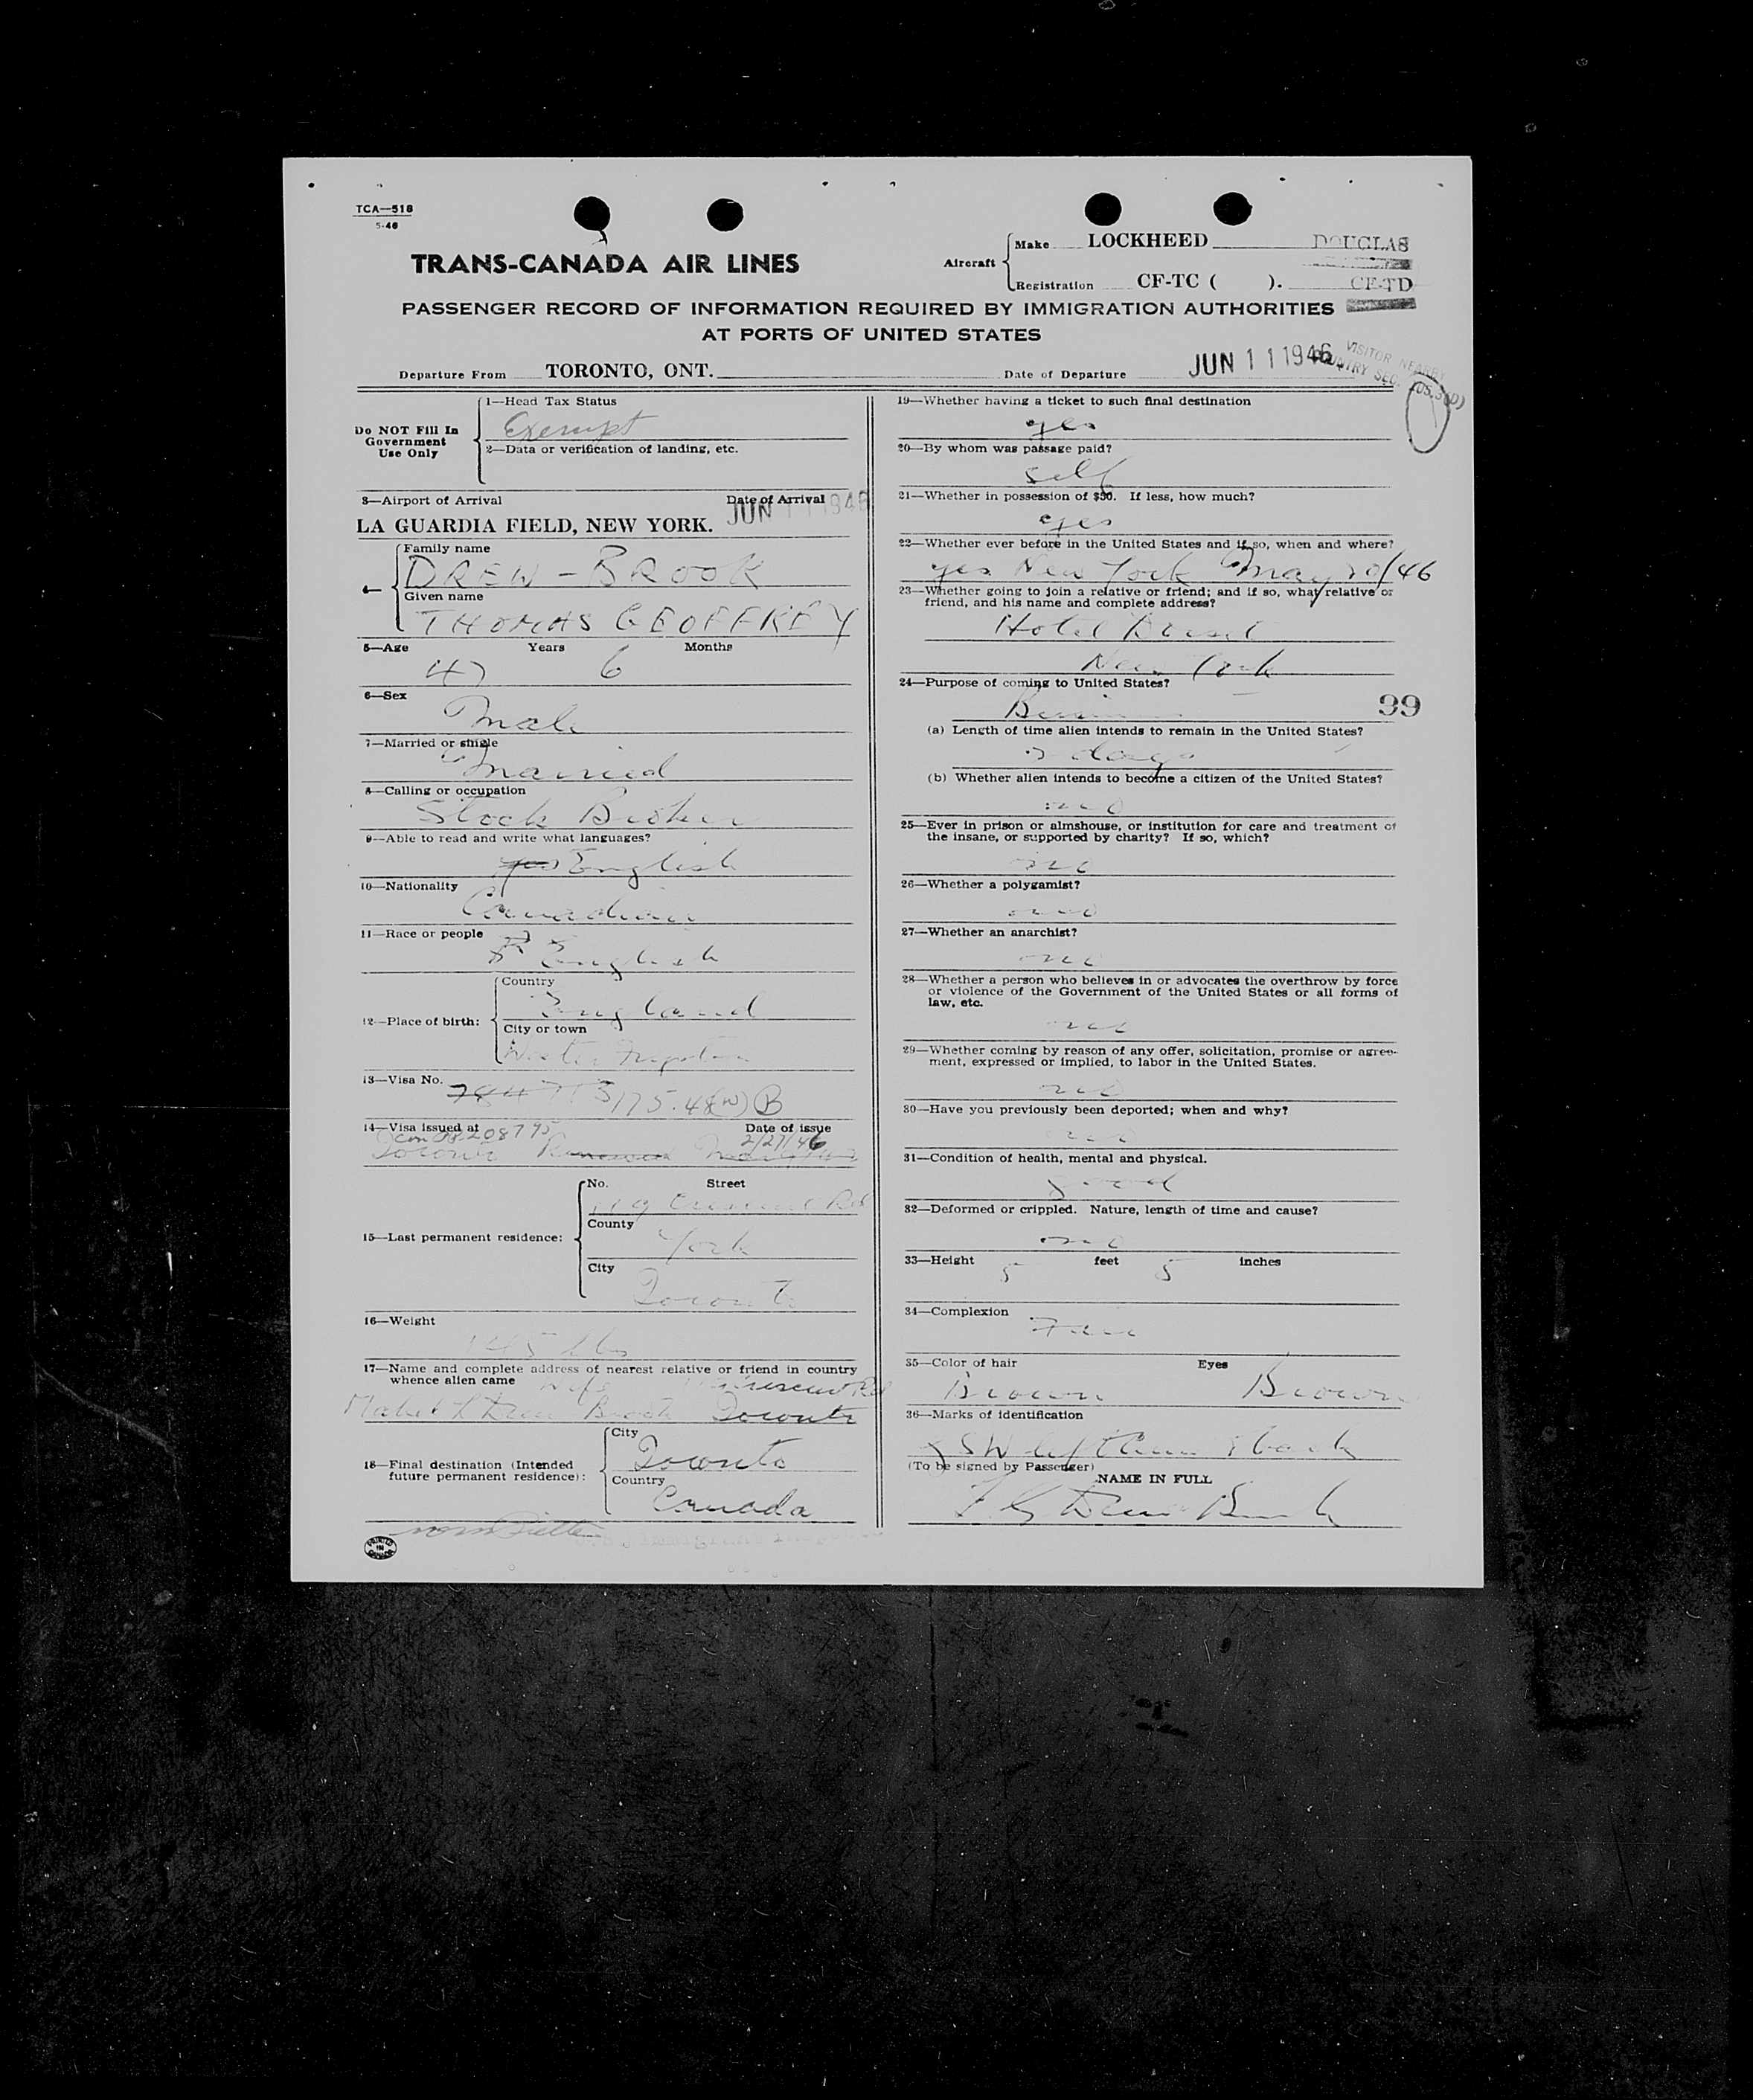 TCA—518
5-46
TRANS-CANADA AIR LINES
Aircraft
Make LOCKHEED DOUGLAS
Registration CF-TC ( ). CF-TD
PASSENGER RECORD OF INFORMATION REQUIRED BY IMMIGRATION AUTHORITIES
AT PORTS OF UNITED STATES
Departure From TORONTO, ONT. Date of Departure JUN 11 1946
VISITOR NEARBY
COUNTRY SEC.
Do NOT Fill In
Government
Use Only
1—Head Tax Status
Exempt
2—Data or verification of landing, etc.
3—Airport of Arrival Date of Arrival
LA GUARDIA FIELD, NEW YORK. JUN 11 1946
4—
Family name
DREW-BROOK
Given name
THOMAS GEOFFREY
5—Age Years Months
47 6
6—Sex
Male
7—Married or single
Married
8—Calling or occupation
Stock Broker
9—Able to read and write what languages?
yes English
10—Nationality
Canadian
11—Race or people
English
12—Place of birth:
Country
England
City or town
13—Visa No.
175.48(W) B
14—Visa issued at Date of issue
2/27/46
Toronto
15—Last permanent residence:
No. Street
Crescent Rd
County
York
City
Toronto
16—Weight
145 lbs
17—Name and complete address of nearest relative or friend in country
whence alien came Wife Crescent Rd
Mabel Drew Brook Toronto
18—Final destination (Intended
future permanent residence):
City
Toronto
Country
Canada
PRINTED
IN
CANADA
19—Whether having a ticket to such final destination
yes
20—By whom was passage paid?
self
21—Whether in possession of $50. If less, how much?
yes
22—Whether ever before in the United States and if so, when and where?
yes New York May 20/46
23—Whether going to join a relative or friend; and if so, what relative or
friend, and his name and complete address?
Hotel Dorset
New York
24—Purpose of coming to United States?
Business
99
(a) Length of time alien intends to remain in the United States?
days
(b) Whether alien intends to become a citizen of the United States?
no
25—Ever in prison or almshouse, or institution for care and treatment of
the insane, or supported by charity? If so, which?
no
26—Whether a polygamist?
no
27—Whether an anarchist?
no
28—Whether a person who believes in or advocates the overthrow by force
or violence of the Government of the United States or all forms of
law, etc.
no
29—Whether coming by reason of any offer, solicitation, promise or agree-
ment, expressed or implied, to labor in the United States.
no
30—Have you previously been deported; when and why?
no
31—Condition of health, mental and physical.
good
32—Deformed or crippled. Nature, length of time and cause?
no
33—Height 5 feet 5 inches
34—Complexion
Fair
35—Color of hair Eyes
Brown Brown
36—Marks of identification
GSW left arm & back
(To be signed by Passenger)
NAME IN FULL
T G Drew Brook